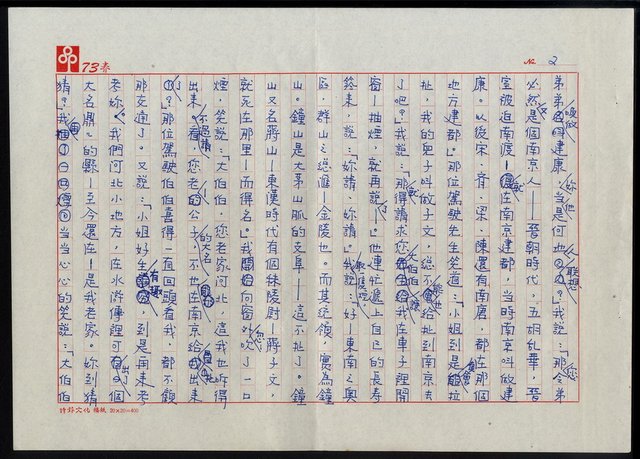 73春
№ 2
弟弟叫建康,當是何也?」我說:「那令弟
必然是個南京人——晉朝時代,五胡亂華,晉
室被迫南渡——就在南京建都,當時南京叫做建
康。以後宋、齊、梁、陳還有南唐,都在那個
地方建都。」那位駕駛先生笑道:「小姐到是能拉
扯,我的兒子叫做子文,總不會給扯到南京去
了吧?」我說:「那得請求您大伯伯讓我在車子裡開
窗——抽煙,就再說——」他連忙遞上自己的長壽
給來,說:「妳請、妳請。」我說:「好——東南之奧
區,群山之總匯——金陵也。而其統領,實為鐘
山。鐘山是大茅山脈的支阜——這不扯了。鐘
山又名蔣山——東漢時代有個秣陵尉——蔣子文,
就死在那里——而得名。」我開始向窗外吹了一口
煙,笑說:「大伯伯,您老家河北,這我也听得
出來。不過請看,您老的公子,不也在南京給出來
了?」那位駕駛伯伯喜得一直回頭看我,都不顧
那交通了。又說:「小姐好生有趣,到是再來老
老妳。我們河北小地方,在水滸傳裡可出個
大名鼎鼎的縣——至今還在——是我老家。妳到猜
猜?」我當當心心的笑說:「大伯伯
詩好文化 稿紙 20×20=400